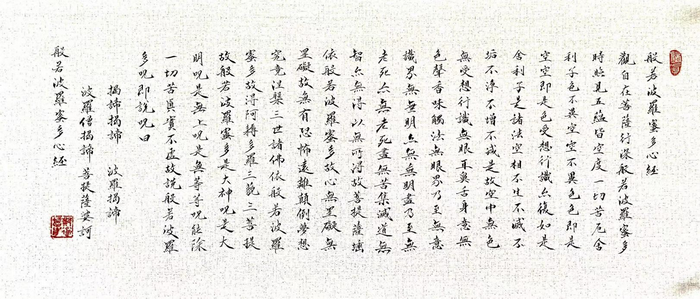 般若波羅蜜多心経
觀自在菩薩行深般若波羅蜜多
時照見五蘊皆空度一切苦厄舍
利子色不異空空不異色色即是
空空即是色受想行識亦復如是
舍利子是諸法空相不生不滅不
垢不淨不增不減是故空中無色
無受想行識無眼耳鼻舌身意無
色聲香味觸法無眼界乃至無意
識界無無明亦無無明盡乃至無
老死亦無老死盡無苦集滅道無
智亦無得以無所得故菩提薩埵
依般若波羅蜜多故心無罣礙無
罣礙故無有恐怖遠離顛倒夢想
究竟涅槃三世諸佛依般若波羅
蜜多故得阿耨多羅三藐三菩提
故般若波羅蜜多是大神呪是大
明呪是無上呪是無等等呪能除
一切苦真實不虛故說般若波羅
多呪即說呪曰
揭諦揭諦 波羅揭諦
波羅僧揭諦 菩提薩婆訶
般若波羅蜜多心経